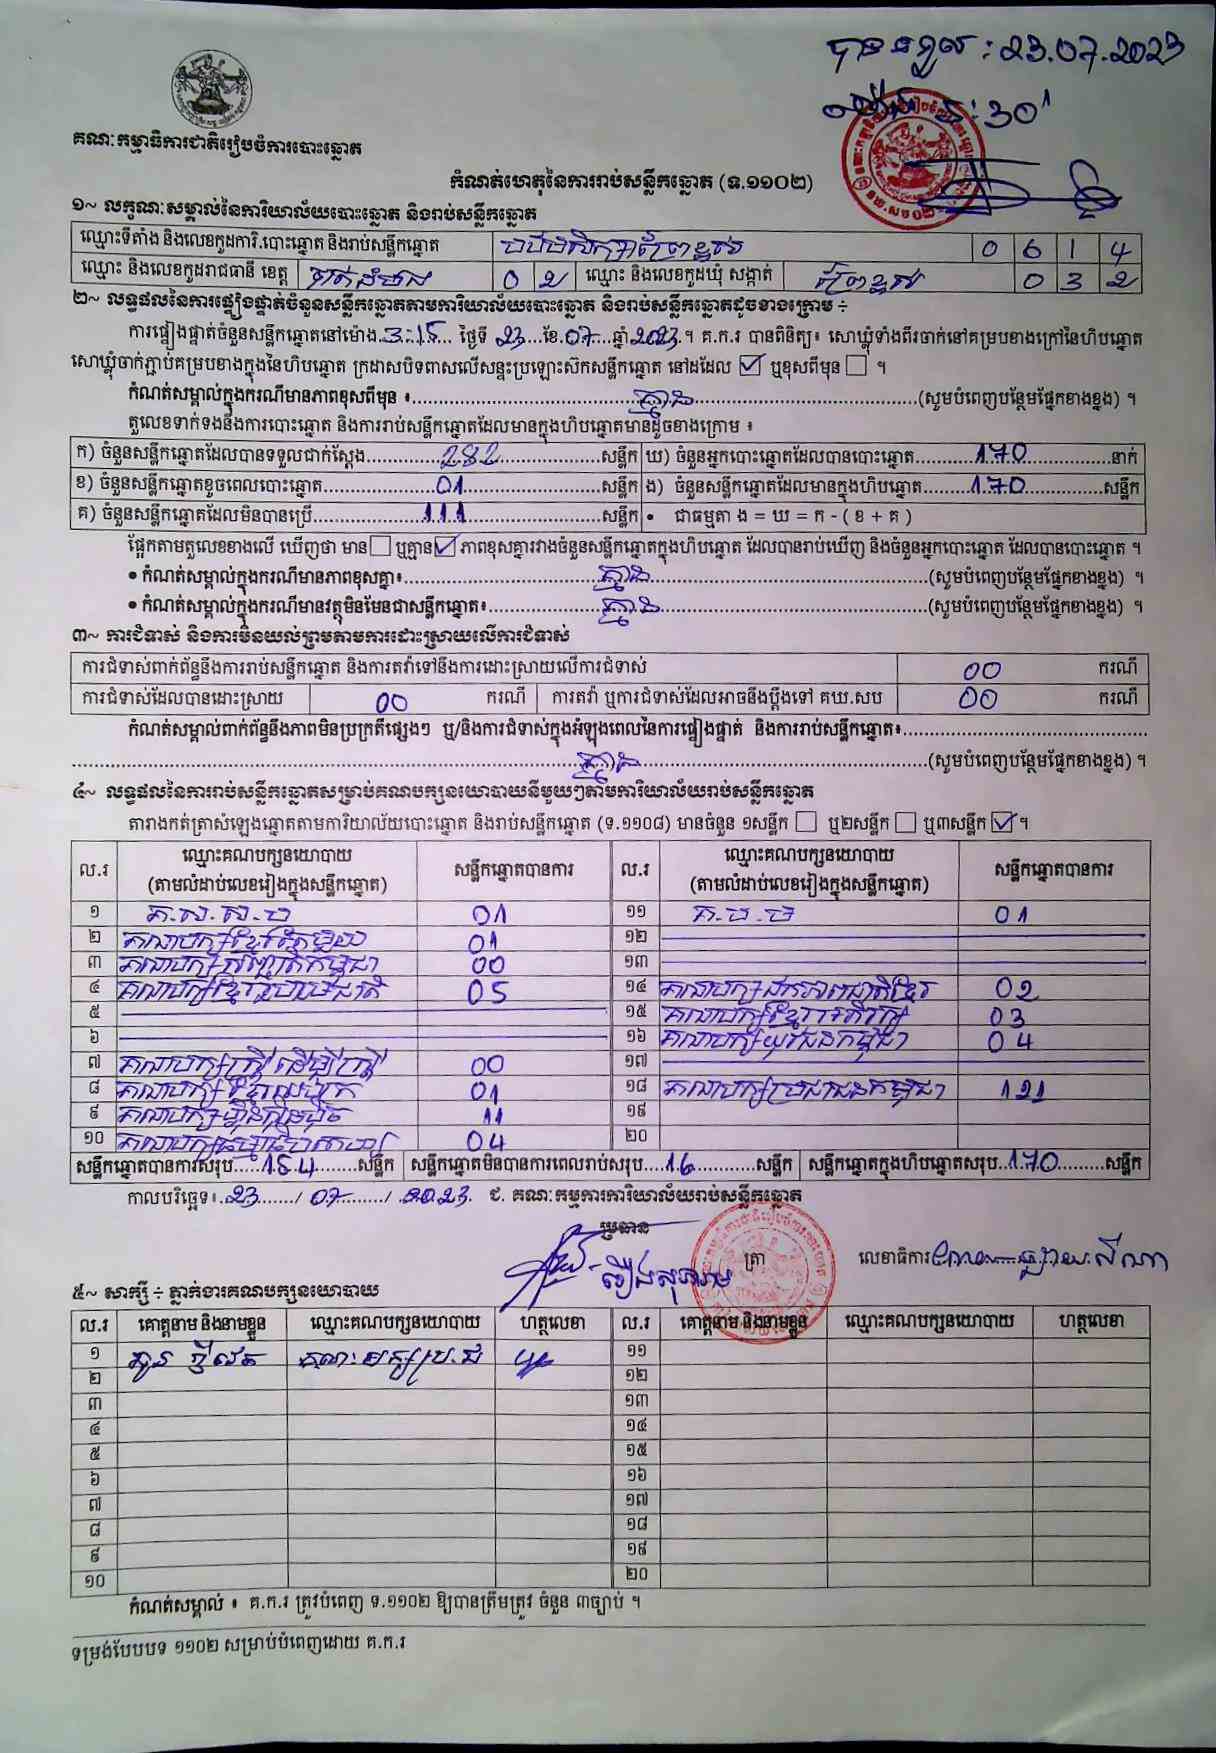 បានទទួល: 23.07.2023
30'
គណៈកម្មាធិការជាតិរៀបចំការបោះឆ្នោត
កំណត់ហេតុនៃការរាប់សន្លឹកឆ្នោត (ទ.១១០២)
១~ លក្ខណៈសម្គាល់នៃការិយាល័យបោះឆ្នោត និងរាប់សន្លឹកឆ្នោត
ឈ្មោះទីតាំង និងលេខកូដការិ.បោះឆ្នោត និងរាប់សន្លឹកឆ្នោត 0 6 1 4
ឈ្មោះ និងលេខកូដរាជធានី ខេត្ត បាត់ដំបង 0 2 ឈ្មោះ និងលេខកូដឃុំ សង្កាត់ ព្រៃខ្ពស់ 0 3 2
២~ លទ្ធផលនៃការផ្ទៀងផ្ទាត់ចំនួនសន្លឹកឆ្នោតតាមការិយាល័យបោះឆ្នោត និងរាប់សន្លឹកឆ្នោតដូចខាងក្រោម ÷
ការផ្ទៀងផ្ទាត់ចំនួនសន្លឹកឆ្នោតនៅម៉ោង 3:15 ថ្ងៃទី 23 ខែ 07 ឆ្នាំ 2023 ។ គ.ក.រ បានពិនិត្យ៖ សោឃ្លុំទាំងពីរចាក់នៅគម្របខាងក្រៅនៃហិបឆ្នោត
សោឃ្លុំចាក់ភ្ជាប់គម្របខាងក្នុងនៃហិបឆ្នោត ក្រដាសបិទពាសលើសន្ទះប្រឡោះស៊កសន្លឹកឆ្នោត នៅដដែល ☑ ឬខុសពីមុន ☐ ។
កំណត់សម្គាល់ក្នុងករណីមានភាពខុសពីមុន ៖ គ្មាន (សូមបំពេញបន្ថែមផ្នែកខាងខ្នង) ។
តួលេខទាក់ទងនឹងការបោះឆ្នោត និងការរាប់សន្លឹកឆ្នោតដែលមានក្នុងហិបឆ្នោតមានដូចខាងក្រោម ៖
ក) ចំនួនសន្លឹកឆ្នោតដែលបានទទួលជាក់ស្តែង 282 សន្លឹក ឃ) ចំនួនអ្នកបោះឆ្នោតដែលបានបោះឆ្នោត 170 នាក់
ខ) ចំនួនសន្លឹកឆ្នោតខូចពេលបោះឆ្នោត 01 សន្លឹក ង) ចំនួនសន្លឹកឆ្នោតដែលមានក្នុងហិបឆ្នោត 170 សន្លឹក
គ) ចំនួនសន្លឹកឆ្នោតដែលមិនបានប្រើ 111 សន្លឹក • ជាធម្មតា ង = ឃ = ក - ( ខ + គ )
ផ្អែកតាមតួលេខខាងលើ ឃើញថា មាន ☐ ឬគ្មាន ☑ ភាពខុសគ្នារវាងចំនួនសន្លឹកឆ្នោតក្នុងហិបឆ្នោត ដែលបានរាប់ឃើញ និងចំនួនអ្នកបោះឆ្នោត ដែលបានបោះឆ្នោត ។
• កំណត់សម្គាល់ក្នុងករណីមានភាពខុសគ្នា៖ គ្មាន (សូមបំពេញបន្ថែមផ្នែកខាងខ្នង) ។
• កំណត់សម្គាល់ក្នុងករណីមានវត្ថុមិនមែនជាសន្លឹកឆ្នោត៖ គ្មាន (សូមបំពេញបន្ថែមផ្នែកខាងខ្នង) ។
៣~ ការជំទាស់ និងការមិនយល់ព្រមតាមការដោះស្រាយលើការជំទាស់
ការជំទាស់ពាក់ព័ន្ធនឹងការរាប់សន្លឹកឆ្នោត និងការតវ៉ាទៅនឹងការដោះស្រាយលើការជំទាស់ 00 ករណី
ការជំទាស់ដែលបានដោះស្រាយ 00 ករណី ការតវ៉ា ឬការជំទាស់ដែលអាចនឹងប្តឹងទៅ គឃ.សប 00 ករណី
កំណត់សម្គាល់ពាក់ព័ន្ធនឹងភាពមិនប្រក្រតីផ្សេងៗ ឬ/និងការជំទាស់ក្នុងអំឡុងពេលនៃការផ្ទៀងផ្ទាត់ និងការរាប់សន្លឹកឆ្នោត៖
គ្មាន (សូមបំពេញបន្ថែមផ្នែកខាងខ្នង) ។
៤~ លទ្ធផលនៃការរាប់សន្លឹកឆ្នោតសម្រាប់គណបក្សនយោបាយនីមួយៗតាមការិយាល័យរាប់សន្លឹកឆ្នោត
តារាងកត់ត្រាសំឡេងឆ្នោតតាមការិយាល័យបោះឆ្នោត និងរាប់សន្លឹកឆ្នោត (ទ.១១០៨) មានចំនួន ១សន្លឹក ☐ ឬ២សន្លឹក ☐ ឬ៣សន្លឹក ☑ ។
ល.រ ឈ្មោះគណបក្សនយោបាយ (តាមលំដាប់លេខរៀងក្នុងសន្លឹកឆ្នោត) សន្លឹកឆ្នោតបានការ ល.រ ឈ្មោះគណបក្សនយោបាយ (តាមលំដាប់លេខរៀងក្នុងសន្លឹកឆ្នោត) សន្លឹកឆ្នោតបានការ
១ គ.ស.ស.ប 01 ១១ គ.ប.ច 01
២ គណបក្សខ្មែរតែមួយ 01 ១២
៣ គណបក្ស 00 ១៣
៤ គណបក្សខ្មែររួបរួមជាតិ 05 ១៤ គណបក្ស 02
៥ ១៥ គណបក្សខ្មែរ 03
៦ ១៦ គណបក្សយុវជនកម្ពុជា 04
៧ គណបក្សស្ត្រីដើម្បីស្ត្រី 00 ១៧
៨ គណបក្សខ្មែរ 01 ១៨ គណបក្សប្រជាជនកម្ពុជា 121
៩ គណបក្សហ្វ៊ុនស៊ិនប៉ិច 11 ១៩
១០ គណបក្សធម្មាធិបតេយ្យ 04 ២០
សន្លឹកឆ្នោតបានការសរុប 154 សន្លឹក សន្លឹកឆ្នោតមិនបានការពេលរាប់សរុប 16 សន្លឹក សន្លឹកឆ្នោតក្នុងហិបឆ្នោតសរុប 170 សន្លឹក
កាលបរិច្ឆេទ៖ 23 / 07 / 2023 ជ. គណៈកម្មការការិយាល័យរាប់សន្លឹកឆ្នោត
ប្រធាន
ត្រា លេខាធិការ
៥~ សាក្សី ÷ ភ្នាក់ងារគណបក្សនយោបាយ
ល.រ គោត្តនាម និងនាមខ្លួន ឈ្មោះគណបក្សនយោបាយ ហត្ថលេខា ល.រ គោត្តនាម និងនាមខ្លួន ឈ្មោះគណបក្សនយោបាយ ហត្ថលេខា
១ គណៈបក្សប្រ.ជ ១១
២ ១២
៣ ១៣
៤ ១៤
៥ ១៥
៦ ១៦
៧ ១៧
៨ ១៨
៩ ១៩
១០ ២០
កំណត់សម្គាល់ ៖ គ.ក.រ ត្រូវបំពេញ ទ.១១០២ ឱ្យបានត្រឹមត្រូវ ចំនួន ៣ច្បាប់ ។
ទម្រង់បែបបទ ១១០២ សម្រាប់បំពេញដោយ គ.ក.រ